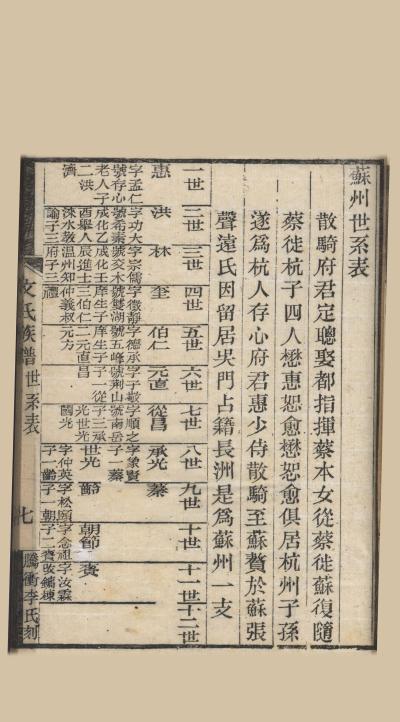 蘇州世系表
散騎府君定聰娶都指揮蔡本女從蔡徙蘇復隨
蔡徙杭子四人懋惠恕愈懋恕愈俱居杭州子孫
遂爲杭人存心府君惠少侍散騎至蘇贅於蘇張
聲遠氏因留居吳門占籍長洲是爲蘇州一支
一世
二世
三世
四世
五世
六世
七世
八世
九世
十世
十一世
十二世
惠
字孟仁
號存心
老人子
二洪
濟
洪
字功大
號希素
成化乙
酉舉人
淶水教
諭子三
林
字宗儒
號交木
成化壬
辰進士
溫州知
府子三
奎
字徵靜
號雙湖
庠生子
三伯仁
仲義叔
禮
伯仁
字德承
號五峰
庠生子
二元直
元方
元直
字子敬
號荆山
子一從
昌
從昌
字順之
號南岳
子三承
光世光
國光
承光
字象賢
子一蓁
世光
字仲英
子一齡
蓁
齡
字松頤
子一朝
節
朝節
字念祖
子一賡
賡
字汝霖
改鏞棟
文氏族譜
世系表
七
騰衝李氏刻